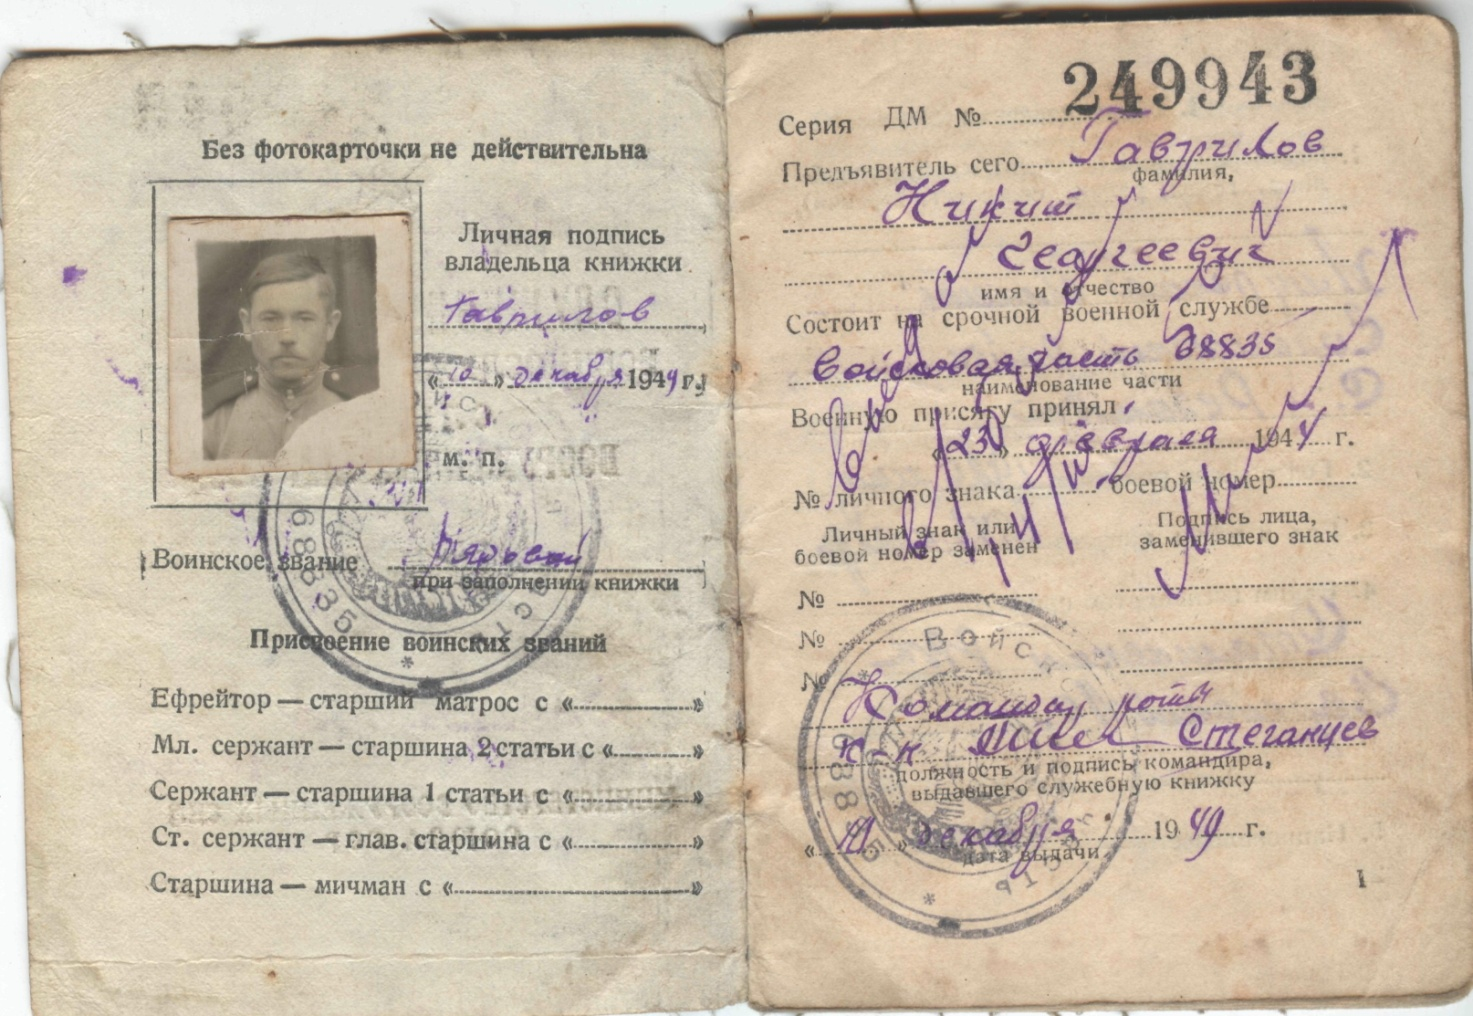 Без фотокарточки не действительна
Личная подпись
владельца книжки
Гаврилов
«10» декабря 1949 г.
м. п.
Воинское звание Рядовой
при заполнении книжки
Присвоение воинских званий
Ефрейтор — старший матрос с «..........»
Мл. сержант — старшина 2 статьи с «..........»
Сержант — старшина 1 статьи с «..........»
Ст. сержант — глав. старшина с «..........»
Старшина — мичман с «..........»
Серия ДМ № 249943
Предъявитель сего Гаврилов
фамилия,
Никит
Георгеевич
имя и отчество
Состоит на срочной военной службе
Войсковая часть 68835
наименование части
Военную присягу принял
«23» февраля 1944 г.
№ личного знака боевой номер
Личный знак или
боевой номер заменен
Подпись лица,
заменившего знак
№
№
№
Командир роты
к-н Стеганцев
должность и подпись командира,
выдавшего служебную книжку
«11» декабря 1949 г.
дата выдачи
1